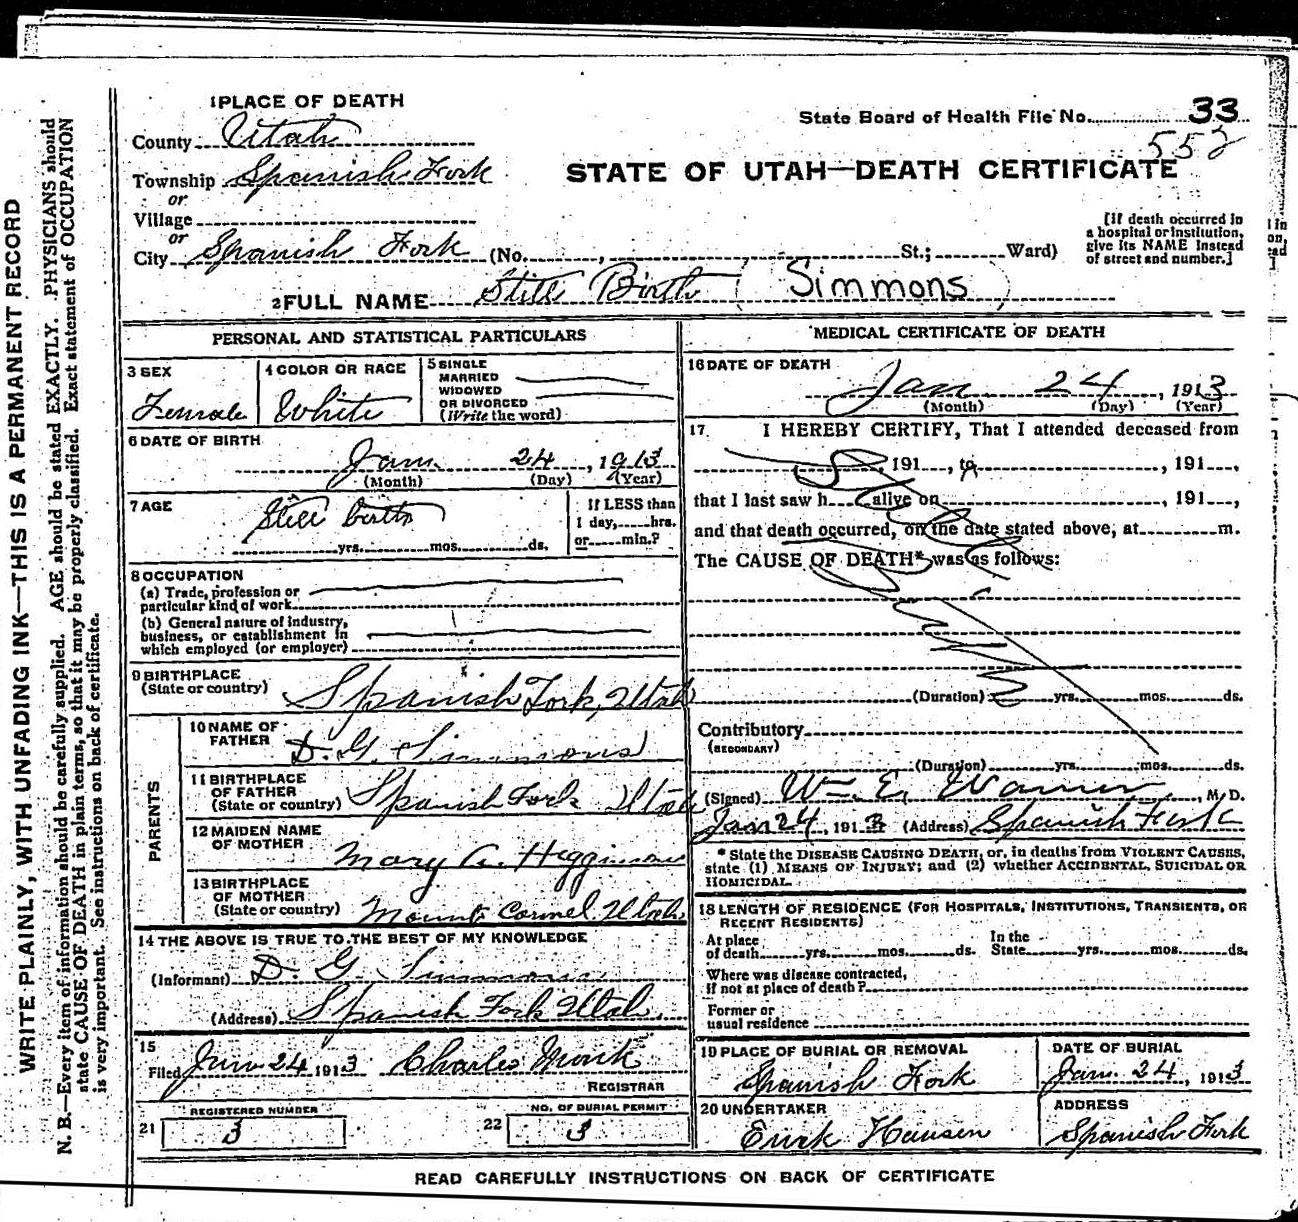 1 PLACE OF DEATH
State Board of Health File No. 33
County Utah
552
Township Spanish Fork
STATE OF UTAH—DEATH CERTIFICATE
or
Village
or
City Spanish Fork (No. , St.; Ward)
[If death occurred in
a hospital or institution,
give its NAME instead
of street and number.]
2 FULL NAME Still Birth (Simmons)
PERSONAL AND STATISTICAL PARTICULARS
3 SEX
Female
4 COLOR OR RACE
White
5 SINGLE
MARRIED
WIDOWED
OR DIVORCED
(Write the word)
6 DATE OF BIRTH
Jan. 24, 1913
(Month) (Day) (Year)
7 AGE
Still birth
yrs. mos. ds.
If LESS than
1 day, hrs.
or min.?
8 OCCUPATION
(a) Trade, profession or
particular kind of work
(b) General nature of industry,
business, or establishment in
which employed (or employer)
9 BIRTHPLACE
(State or country) Spanish Fork, Utah
PARENTS
10 NAME OF
FATHER D. G. Simmons
11 BIRTHPLACE
OF FATHER
(State or country) Spanish Fork Utah
12 MAIDEN NAME
OF MOTHER Mary A. Higginson
13 BIRTHPLACE
OF MOTHER
(State or country) Mount Carmel Utah
14 THE ABOVE IS TRUE TO THE BEST OF MY KNOWLEDGE
(Informant) D. G. Simmons
(Address) Spanish Fork Utah.
15
Filed Jan 24 1913 Charles Monk
REGISTRAR
REGISTERED NUMBER
21 3
NO. OF BURIAL PERMIT
22 3
MEDICAL CERTIFICATE OF DEATH
16 DATE OF DEATH
Jan 24, 1913
(Month) (Day) (Year)
17 I HEREBY CERTIFY, That I attended deceased from
, 191 , to , 191 ,
that I last saw h alive on , 191 ,
and that death occurred, on the date stated above, at m.
The CAUSE OF DEATH* was as follows:
(Duration) yrs. mos. ds.
Contributory
(SECONDARY)
(Duration) yrs. mos. ds.
(Signed) Wm. E. Warner, M.D.
Jan 24, 1913 (Address) Spanish Fork
* State the DISEASE CAUSING DEATH, or, in deaths from VIOLENT CAUSES,
state (1) MEANS OF INJURY; and (2) whether ACCIDENTAL, SUICIDAL OR
HOMICIDAL.
18 LENGTH OF RESIDENCE (FOR HOSPITALS, INSTITUTIONS, TRANSIENTS, OR
RECENT RESIDENTS)
At place
of death yrs. mos. ds.
In the
State yrs. mos. ds.
Where was disease contracted,
If not at place of death?
Former or
usual residence
19 PLACE OF BURIAL OR REMOVAL
Spanish Fork
DATE OF BURIAL
Jan. 24, 1913
20 UNDERTAKER
Hansen
ADDRESS
Spanish Fork
READ CAREFULLY INSTRUCTIONS ON BACK OF CERTIFICATE
WRITE PLAINLY, WITH UNFADING INK—THIS IS A PERMANENT RECORD
N. B.—Every item of information should be carefully supplied. AGE should be stated EXACTLY. PHYSICIANS should
state CAUSE OF DEATH in plain terms, so that it may be properly classified. Exact statement of OCCUPATION
is very important. See instructions on back of certificate.